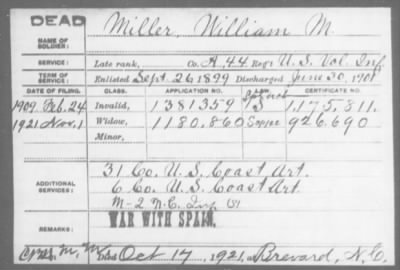 DEAD
NAME OF SOLDIER: Miller, William M.
SERVICE: Late rank, Co. A, 44 Reg't U.S. Vol. Inf.
TERM OF SERVICE: Enlisted Sept. 26 1899 Discharged June 30, 1901
DATE OF FILING. CLASS. APPLICATION NO. LAW. CERTIFICATE NO.
1909 Feb. 24 Invalid, 1381359 1,175,811.
1921 Nov. 1 Widow, 1180,860 926,690
Minor,
ADDITIONAL SERVICES: 31 Co. U.S. Coast Art.
6 Co. U.S. Coast Art.
M-2 N.C. Inf.
WAR WITH SPAIN.
REMARKS:
Died Oct 17, 1921, at Brevard, N.C.